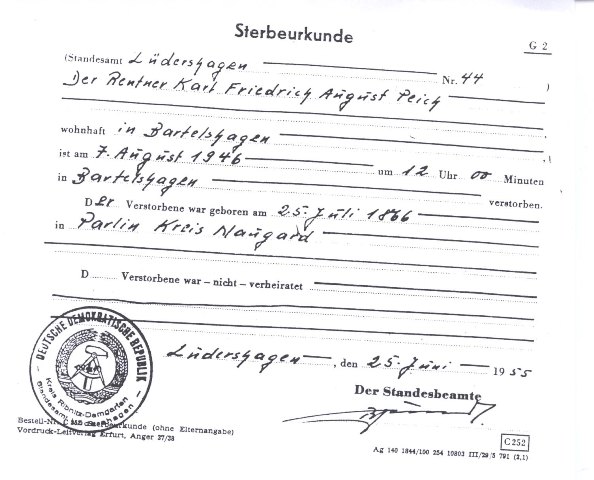 Sterbeurkunde
G 2
(Standesamt Lüdershagen Nr. 44 )
Der Rentner Karl Friedrich August Peich
wohnhaft in Bartelshagen
ist am 7. August 1946 um 12 Uhr 00 Minuten
in Bartelshagen verstorben.
Der Verstorbene war geboren am 25. Juli 1866
in Parlin Kreis Naugard
D Verstorbene war – nicht – verheiratet
Lüdershagen, den 25. Juni 1955
Der Standesbeamte
DEUTSCHE DEMOKRATISCHE REPUBLIK
Kreis Ribnitz-Damgarten
Standesamt Lüdershagen
Bestell-Nr. C 252 Sterbeurkunde (ohne Elternangabe)
Vordruck-Leitverlag Erfurt, Anger 37/38
C 252
Ag 140 1844/100 254 10803 III/29/5 791 (2,1)